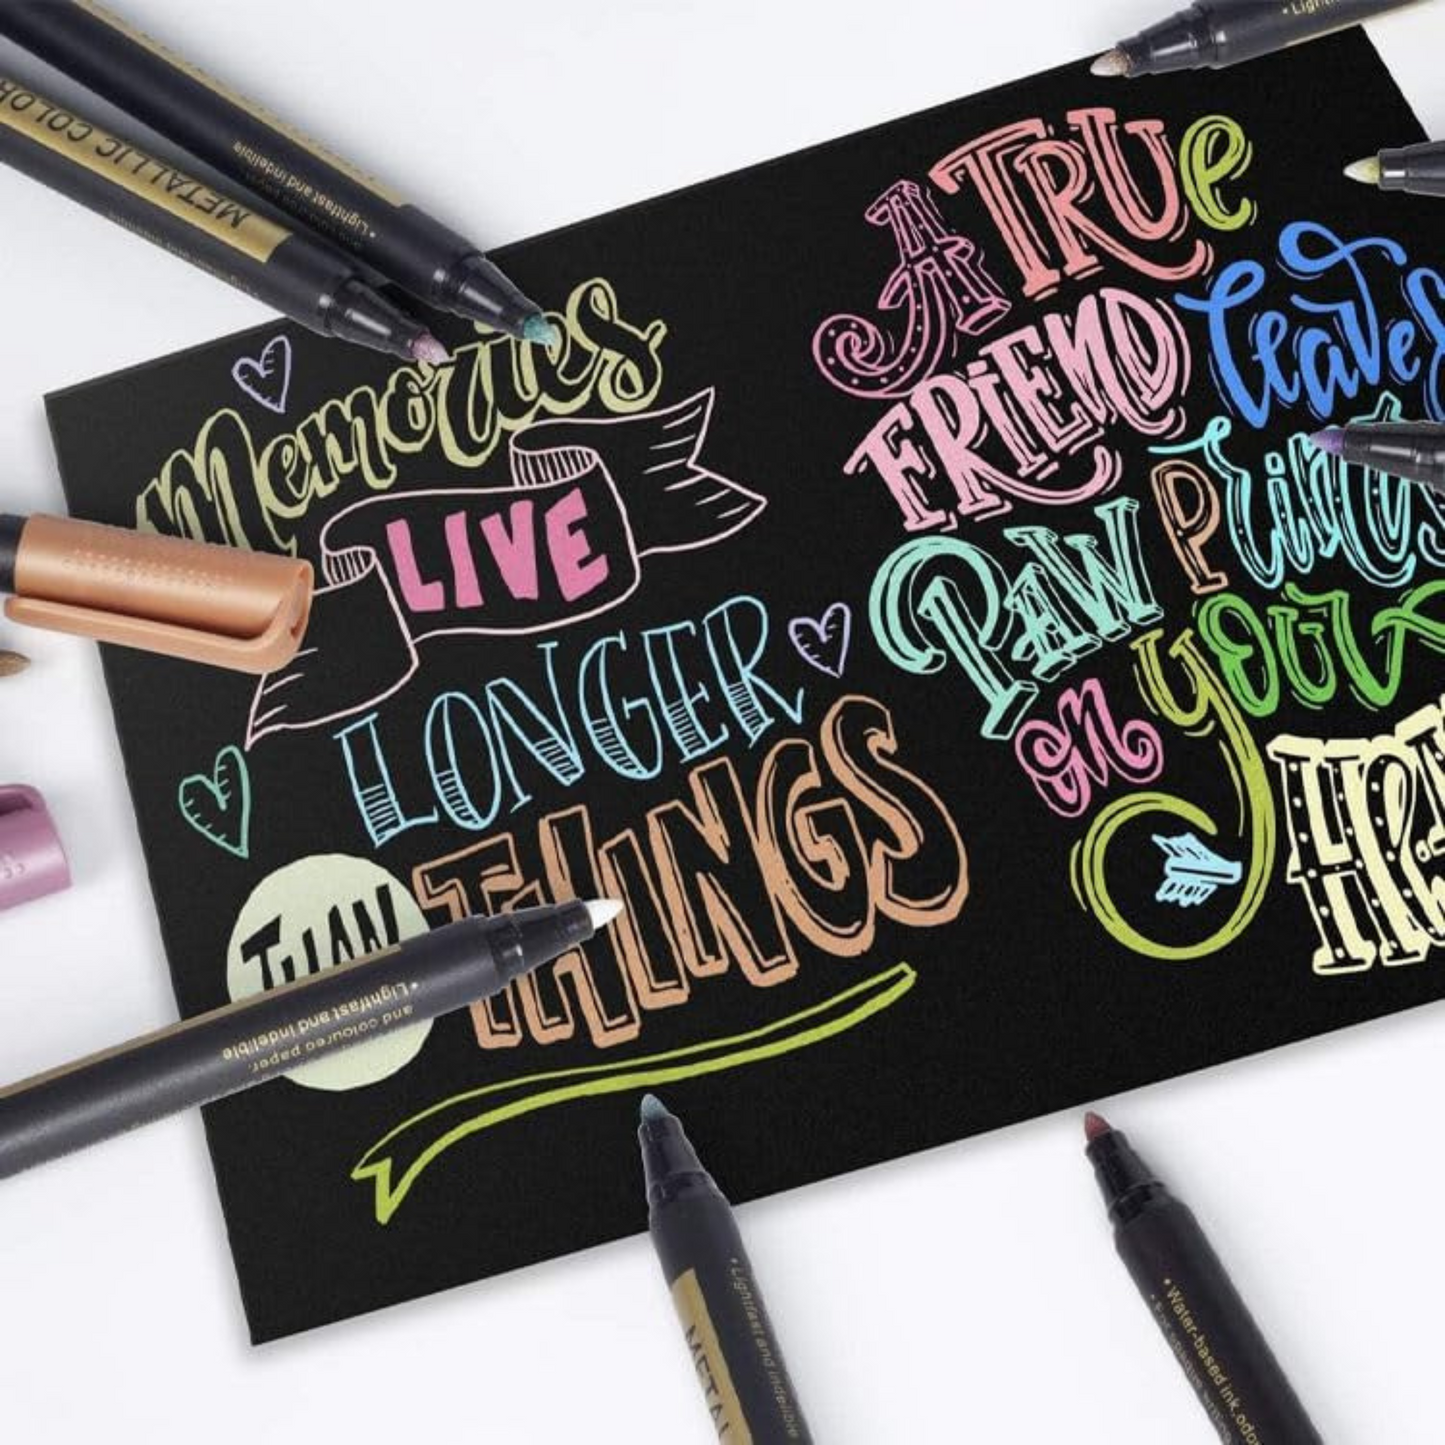 Memories
LIVE
LONGER
THAN
THINGS
A TRUe
FRIEND leaves
PAW Prints
on your
METALLIC COLOR
• Lightfast and indelible
• Lightfast and indelible
and coloured paper.
• Lightfast and indelible
• Water-based ink, odo